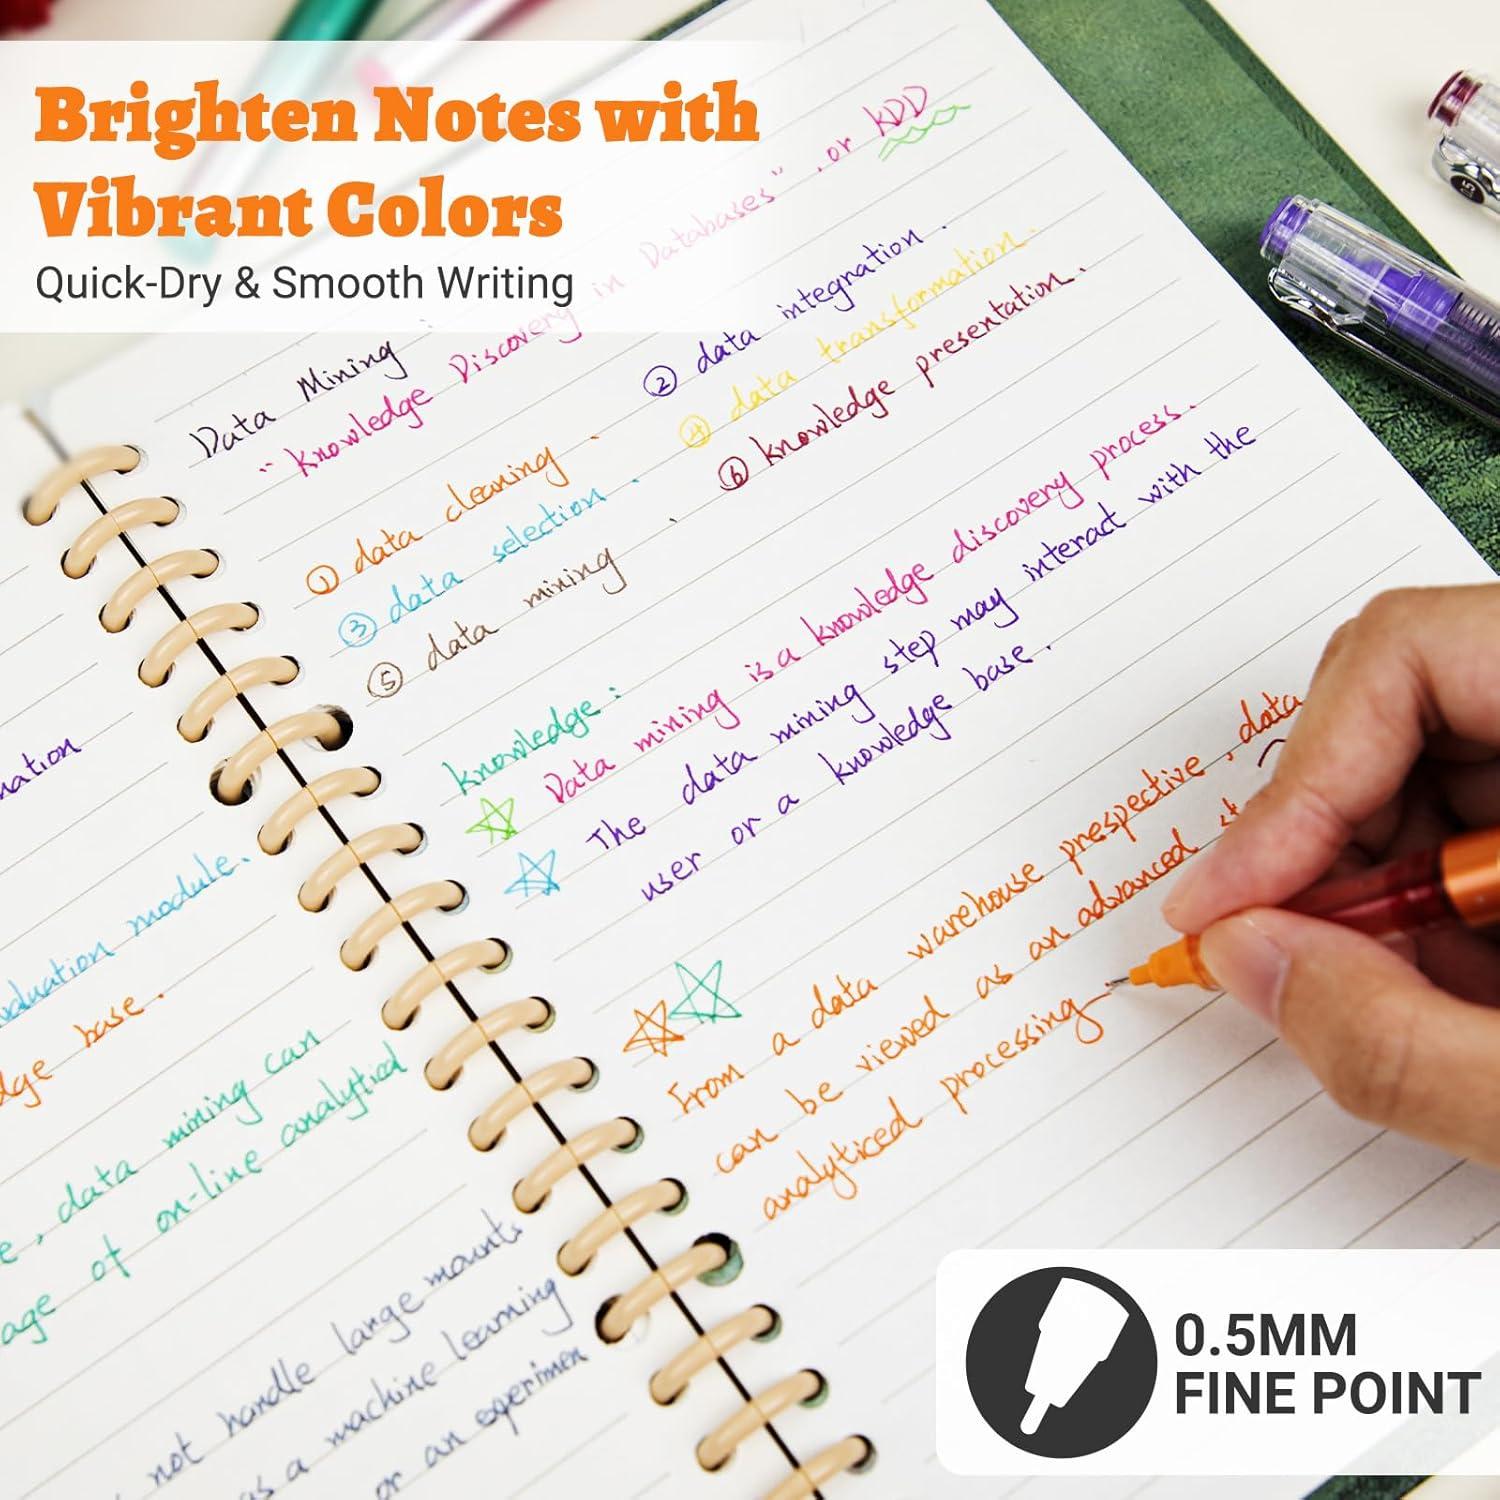 Brighten Notes with
Vibrant Colors
Quick-Dry & Smooth Writing
Data Mining:
"knowledge Discovery in Databases", or KDD
① data cleaning.
② data integration.
③ data selection.
④ data transformation.
⑤ data mining.
⑥ knowledge presentation.
knowledge:
Data mining is a knowledge discovery process.
The data mining step may interact with the
user or a knowledge base.
From a data warehouse prespective, data
can be viewed as an advanced
analyticed processing
module.
base.
, data mining can
of on-line analytied
not handle large mounts
as a machine learning
or an
0.5MM
FINE POINT
0.5